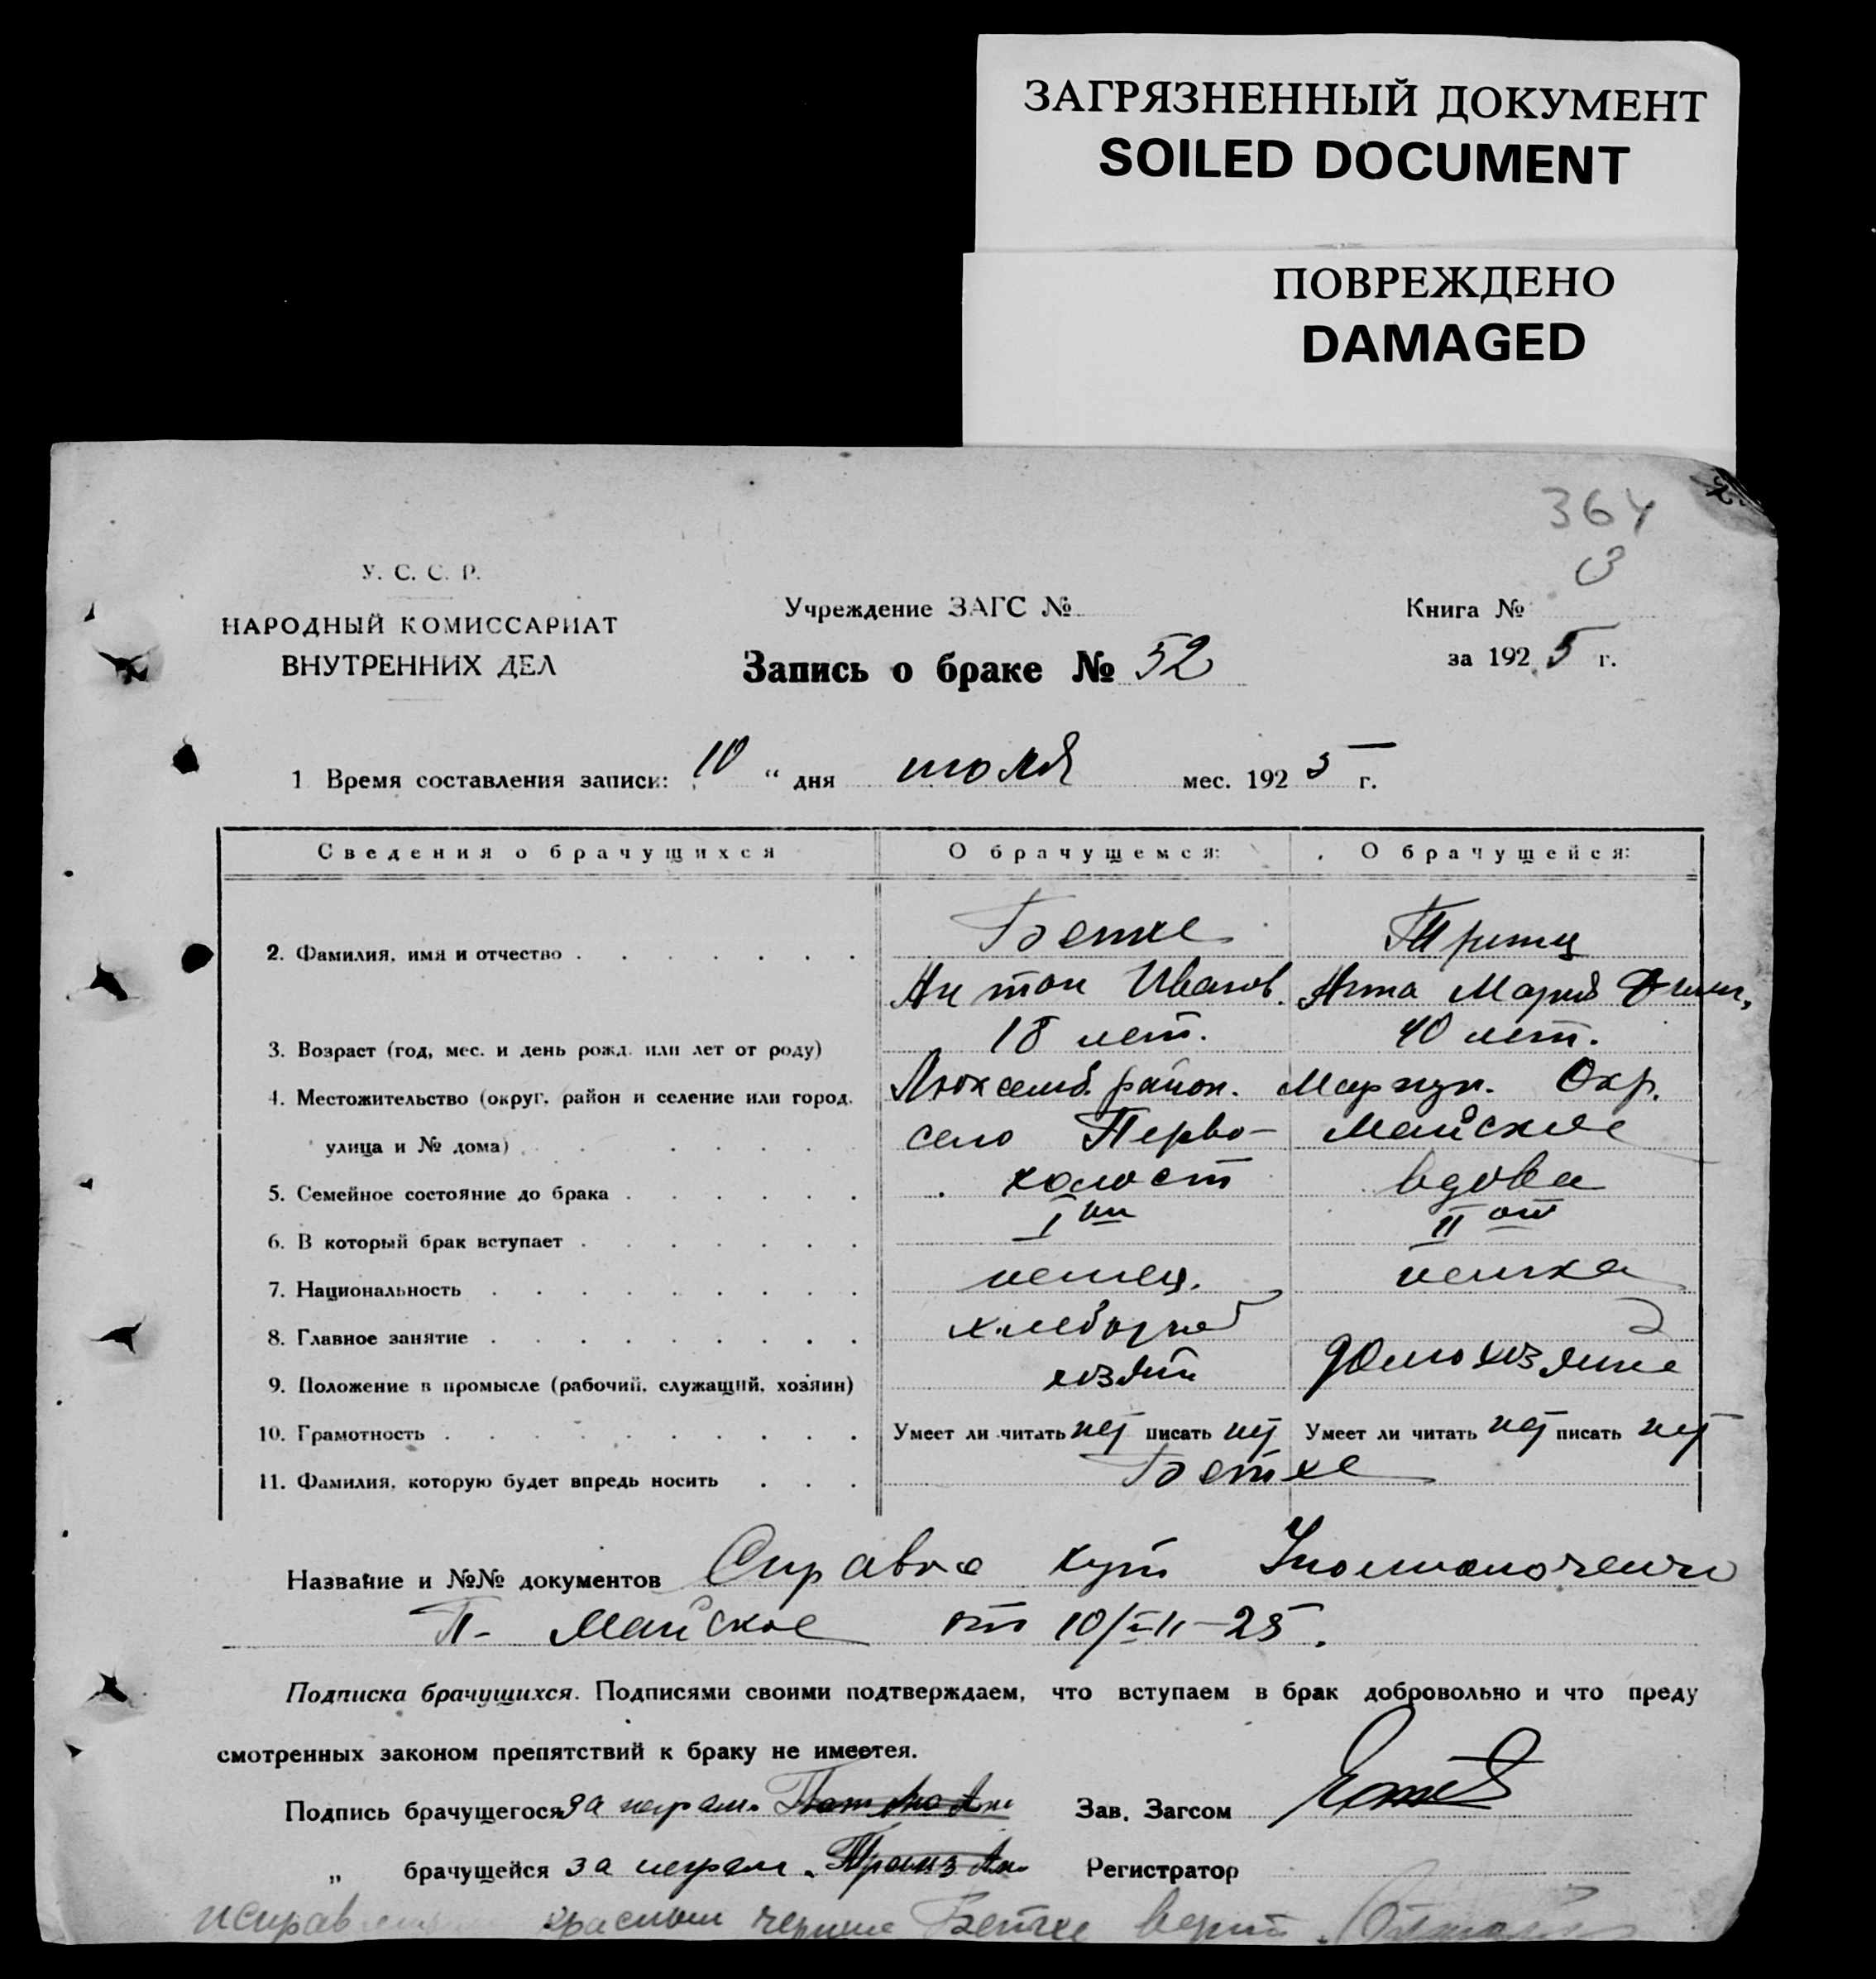 ЗАГРЯЗНЕННЫЙ ДОКУМЕНТ
SOILED DOCUMENT
ПОВРЕЖДЕНО
DAMAGED
364
У. С. С. Р.
НАРОДНЫЙ КОМИССАРИАТ
ВНУТРЕННИХ ДЕЛ
Учреждение ЗАГС №
Запись о браке № 52
Книга №
за 1925 г.
1 Время составления записи: 10 " дня июля мес. 1925 г.
Сведения о брачущихся О брачущемся: О брачущейся:
2. Фамилия, имя и отчество Бетхе
Антон Иванов. Анна Мария
3. Возраст (год, мес. и день рожд. или лет от роду) 18 лет. 40 лет.
4. Местожительство (округ, район и селение или город, Люксемб. район. Мариуп. Окр.
улица и № дома) село Перво- Майское
5. Семейное состояние до брака холост вдова
6. В который брак вступает I ый II ой
7. Национальность немец. немка
8. Главное занятие хлебороб
9. Положение в промысле (рабочий, служащий, хозяин) хозяин домохозяйка
10. Грамотность Умеет ли читать нет писать нет Умеет ли читать нет писать нет
11. Фамилия, которую будет впредь носить Бетхе
Название и №№ документов Справка
П- Майское от 10/VII-25.
Подписка брачущихся. Подписями своими подтверждаем, что вступаем в брак добровольно и что преду
смотренных законом препятствий к браку не имеется.
Подпись брачущегося за неграм. Зав. Загсом
„ брачущейся за неграм. Регистратор
красным Бетхе